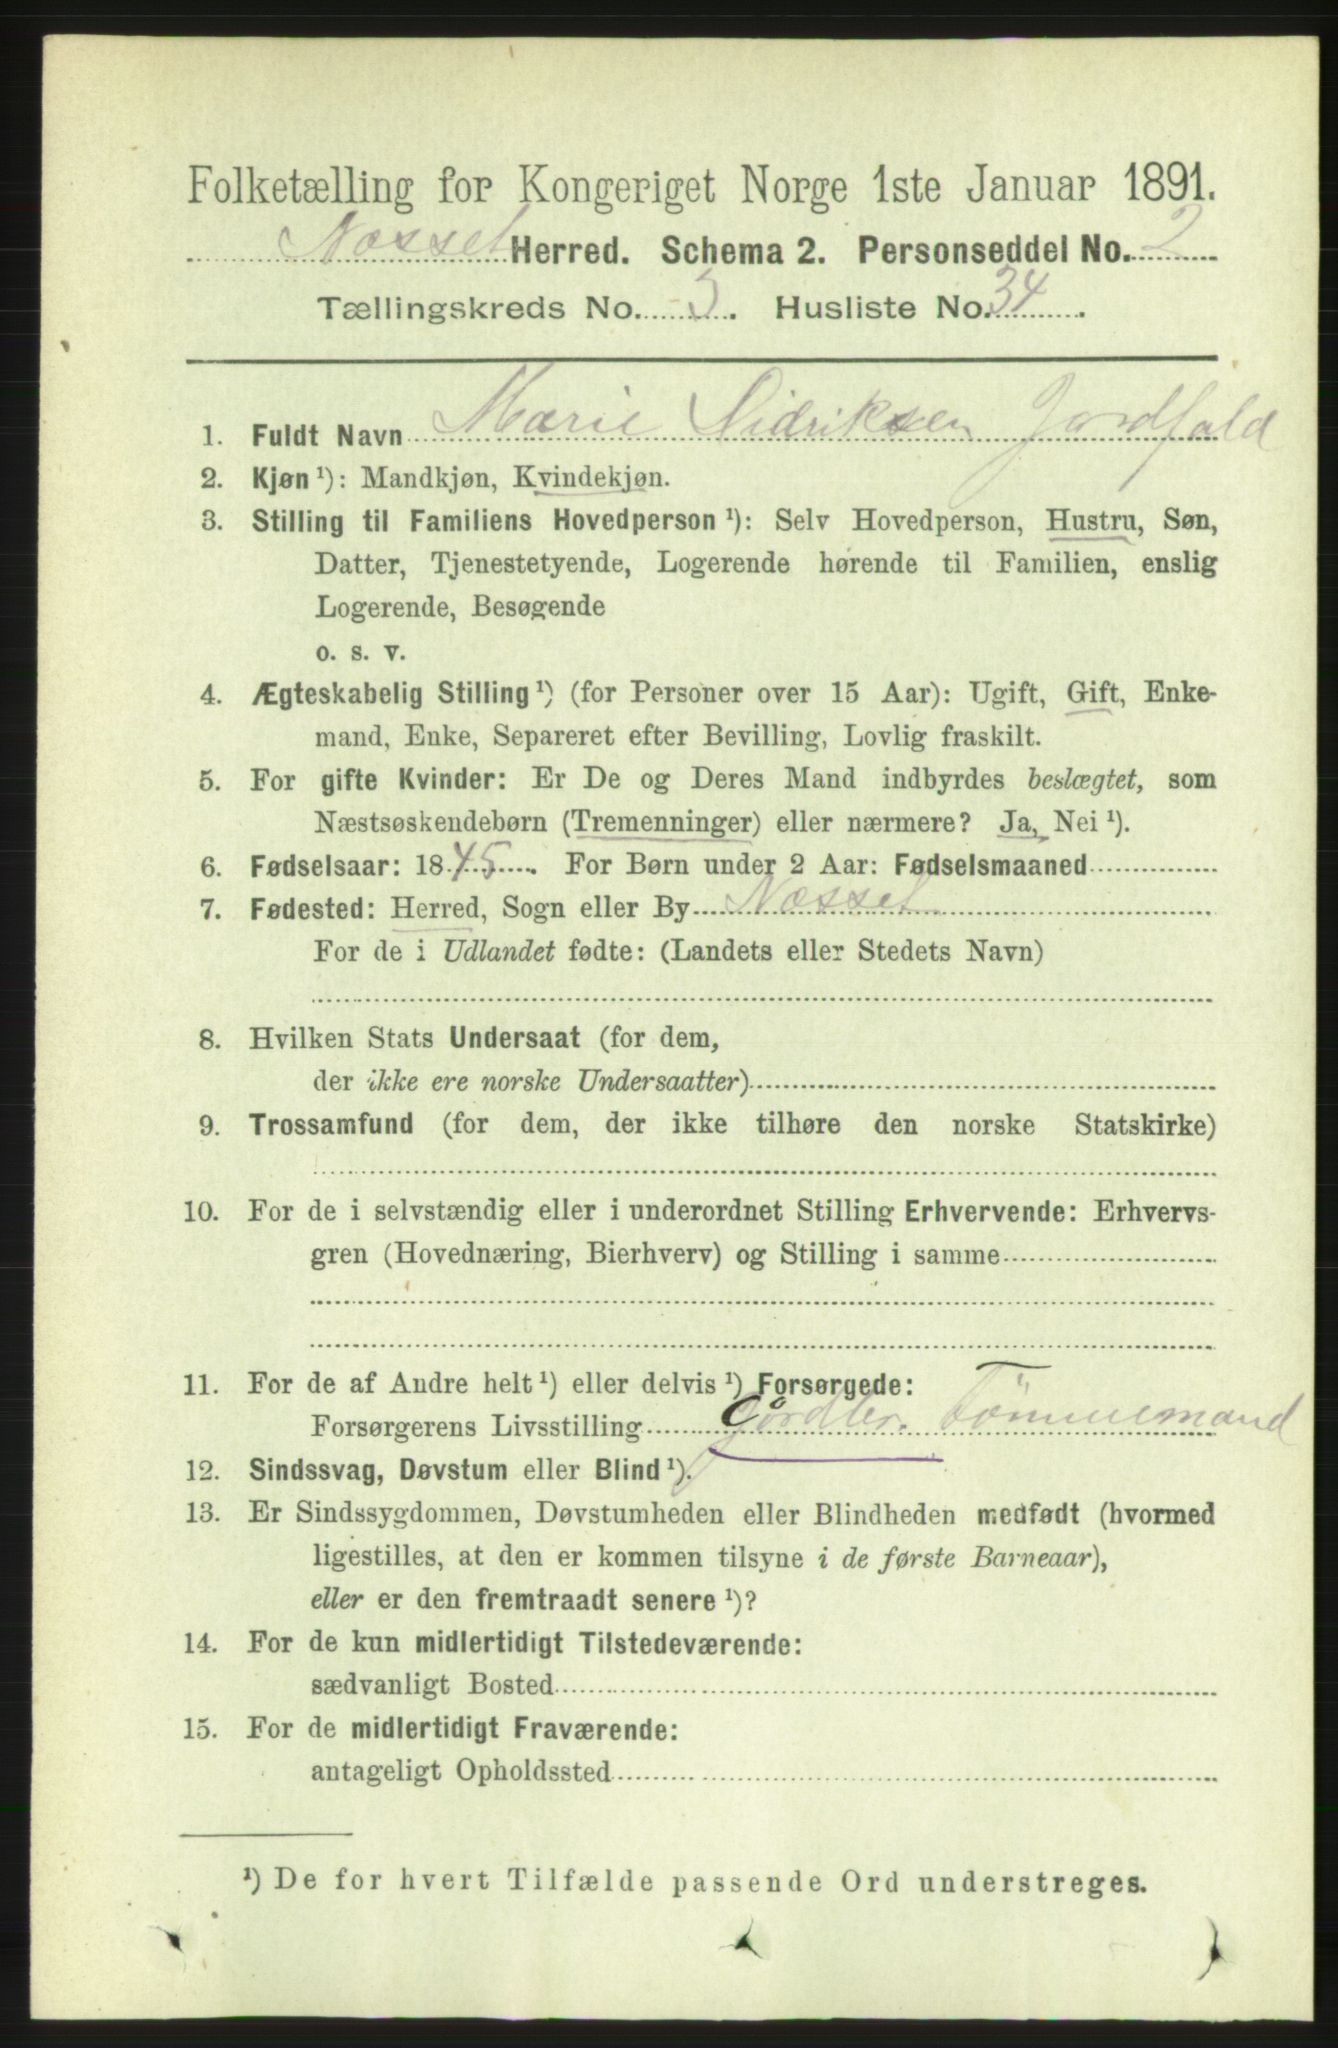 Folketælling for Kongeriget Norge 1ste Januar 1891.
Næsset Herred. Schema 2. Personseddel No. 2
Tællingskreds No. 5. Husliste No. 34.
1. Fuldt Navn Marie Didriksen Jordfald
2. Kjøn ¹): Mandkjøn, Kvindekjøn.
3. Stilling til Familiens Hovedperson ¹): Selv Hovedperson, Hustru, Søn,
Datter, Tjenestetyende, Logerende hørende til Familien, enslig
Logerende, Besøgende
o. s. v.
4. Ægteskabelig Stilling ¹) (for Personer over 15 Aar): Ugift, Gift, Enke-
mand, Enke, Separeret efter Bevilling, Lovlig fraskilt.
5. For gifte Kvinder: Er De og Deres Mand indbyrdes beslægtet, som
Næstsøskendebørn (Tremenninger) eller nærmere? Ja, Nei ¹).
6. Fødselsaar: 1845. For Børn under 2 Aar: Fødselsmaaned
7. Fødested: Herred, Sogn eller By Næsset
For de i Udlandet fødte: (Landets eller Stedets Navn)
8. Hvilken Stats Undersaat (for dem,
der ikke ere norske Undersaatter)
9. Trossamfund (for dem, der ikke tilhøre den norske Statskirke)
10. For de i selvstændig eller i underordnet Stilling Erhvervende: Erhvervs-
gren (Hovednæring, Bierhverv) og Stilling i samme
11. For de af Andre helt ¹) eller delvis ¹) Forsørgede:
Forsørgerens Livsstilling Tömmemand
12. Sindssvag, Døvstum eller Blind ¹).
13. Er Sindssygdommen, Døvstumheden eller Blindheden medfødt (hvormed
ligestilles, at den er kommen tilsyne i de første Barneaar),
eller er den fremtraadt senere ¹)?
14. For de kun midlertidigt Tilstedeværende:
sædvanligt Bosted
15. For de midlertidigt Fraværende:
antageligt Opholdssted
¹) De for hvert Tilfælde passende Ord understreges.